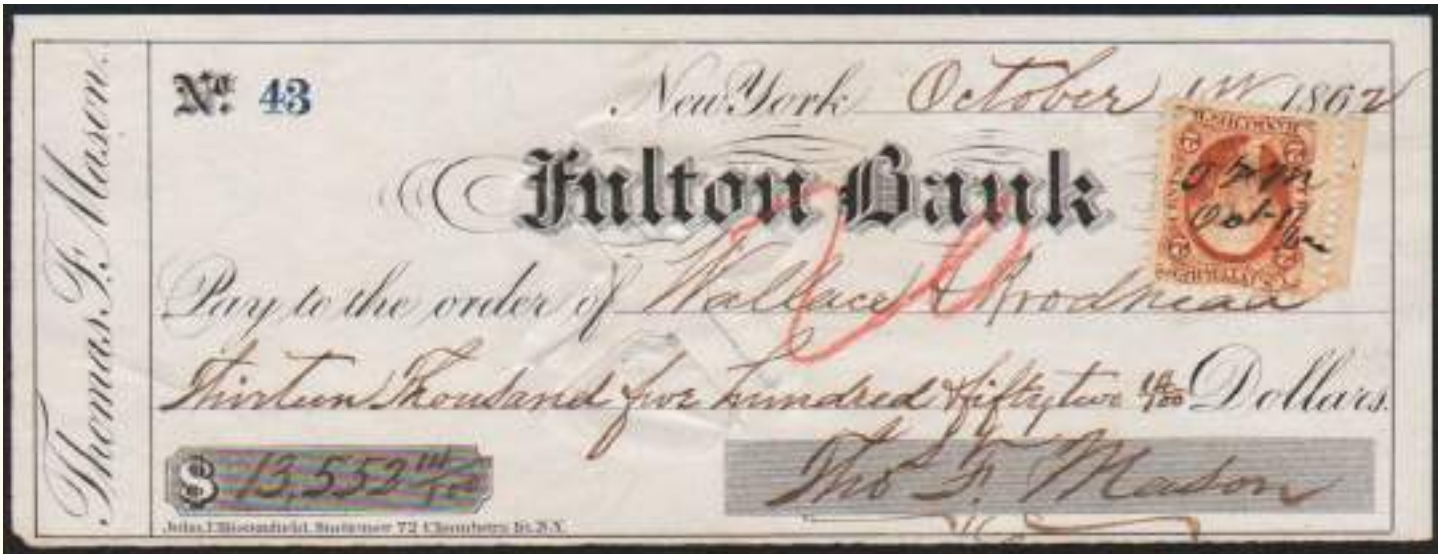 Thomas. F. Mason.
No. 43
New York October 1st 1862
Fulton Bank
Pay to the order of Wallace &
Thirteen Thousand five hundred & fifty two 14/100 Dollars.
$ 13,552 14/100
Tho F. Mason
Stationer 72 Chambers St. N.Y.